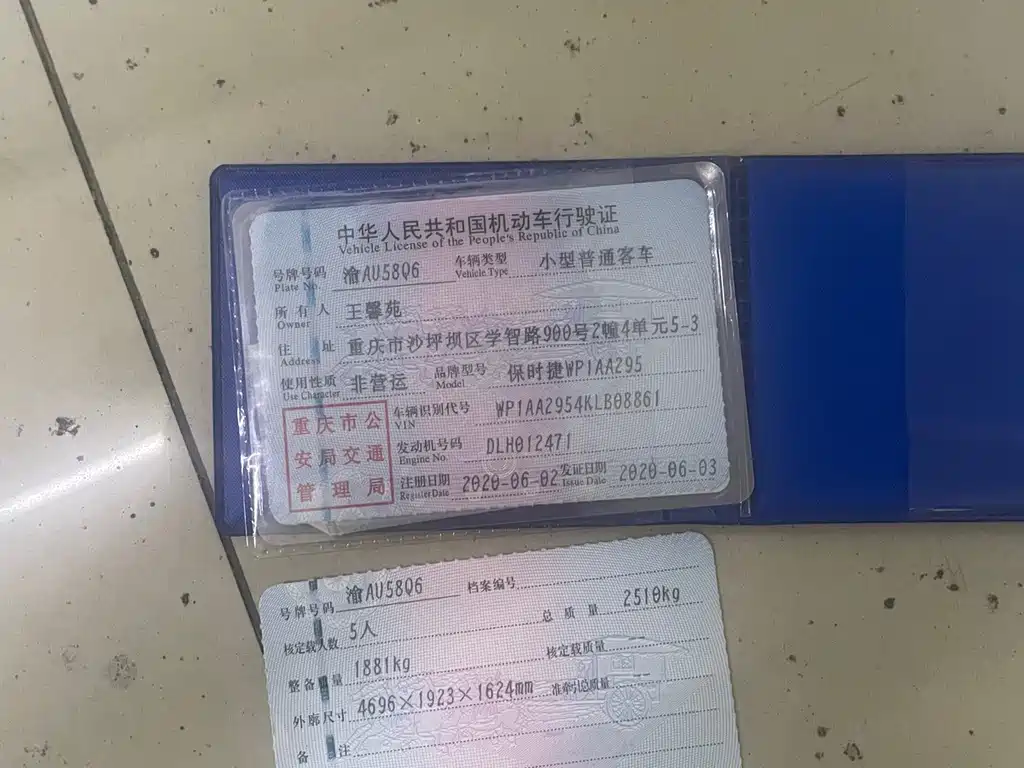 中华人民共和国机动车行驶证
Vehicle License of the People's Republic of China
号牌号码 渝AU58Q6 车辆类型 小型普通客车
Plate No. Vehicle Type
所有人 王馨苑
Owner
住址 重庆市沙坪坝区学智路900号2幢4单元5-3
Address
使用性质 非营运 品牌型号 保时捷WP1AA295
Use Character Model
重庆市公
安局交通
管理局
车辆识别代号 WP1AA2954KLB08861
VIN
发动机号码 DLH012471
Engine No.
注册日期 2020-06-02 发证日期 2020-06-03
Register Date Issue Date
号牌号码 渝AU58Q6 档案编号
核定载人数 5人 总质量 2510kg
整备质量 1881kg 核定载质量 --
外廓尺寸 4696×1923×1624mm 准牵引总质量 --
备注